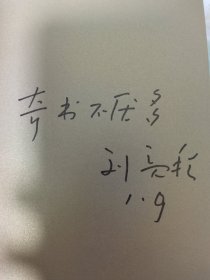 奇书不厌多
刘亮程
1.9